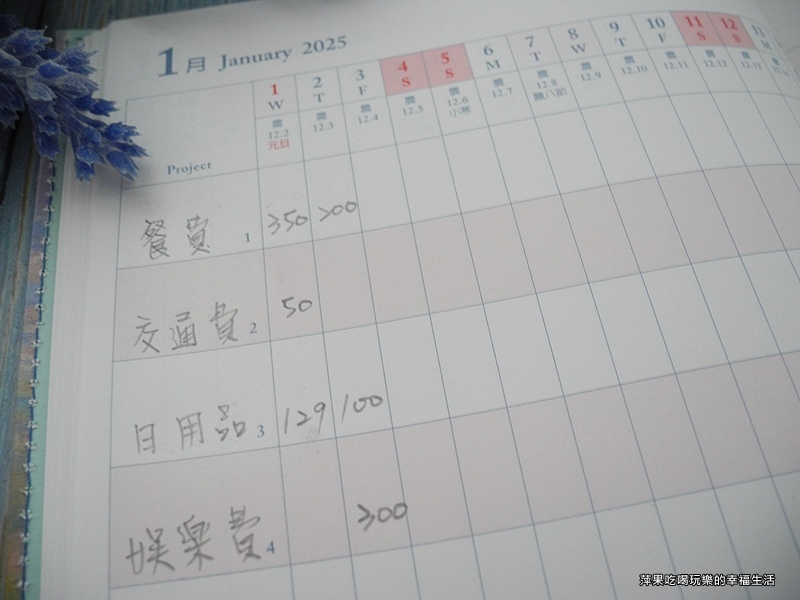 1月 January 2025
1 2 3 4 5 6 7 8 9 10 11 12 13
W T F S S M T W T F S S M
農 農 農 農 農 農 農 農 農 農 農 農 農
12.2 12.3 12.4 12.5 12.6 12.7 12.8 12.9 12.10 12.11 12.12 12.13
元旦 小寒 臘八節
Project
餐費 1 350 200
交通費 2 50
日用品 3 129 100
娛樂費 4 300
萍果吃喝玩樂的幸福生活